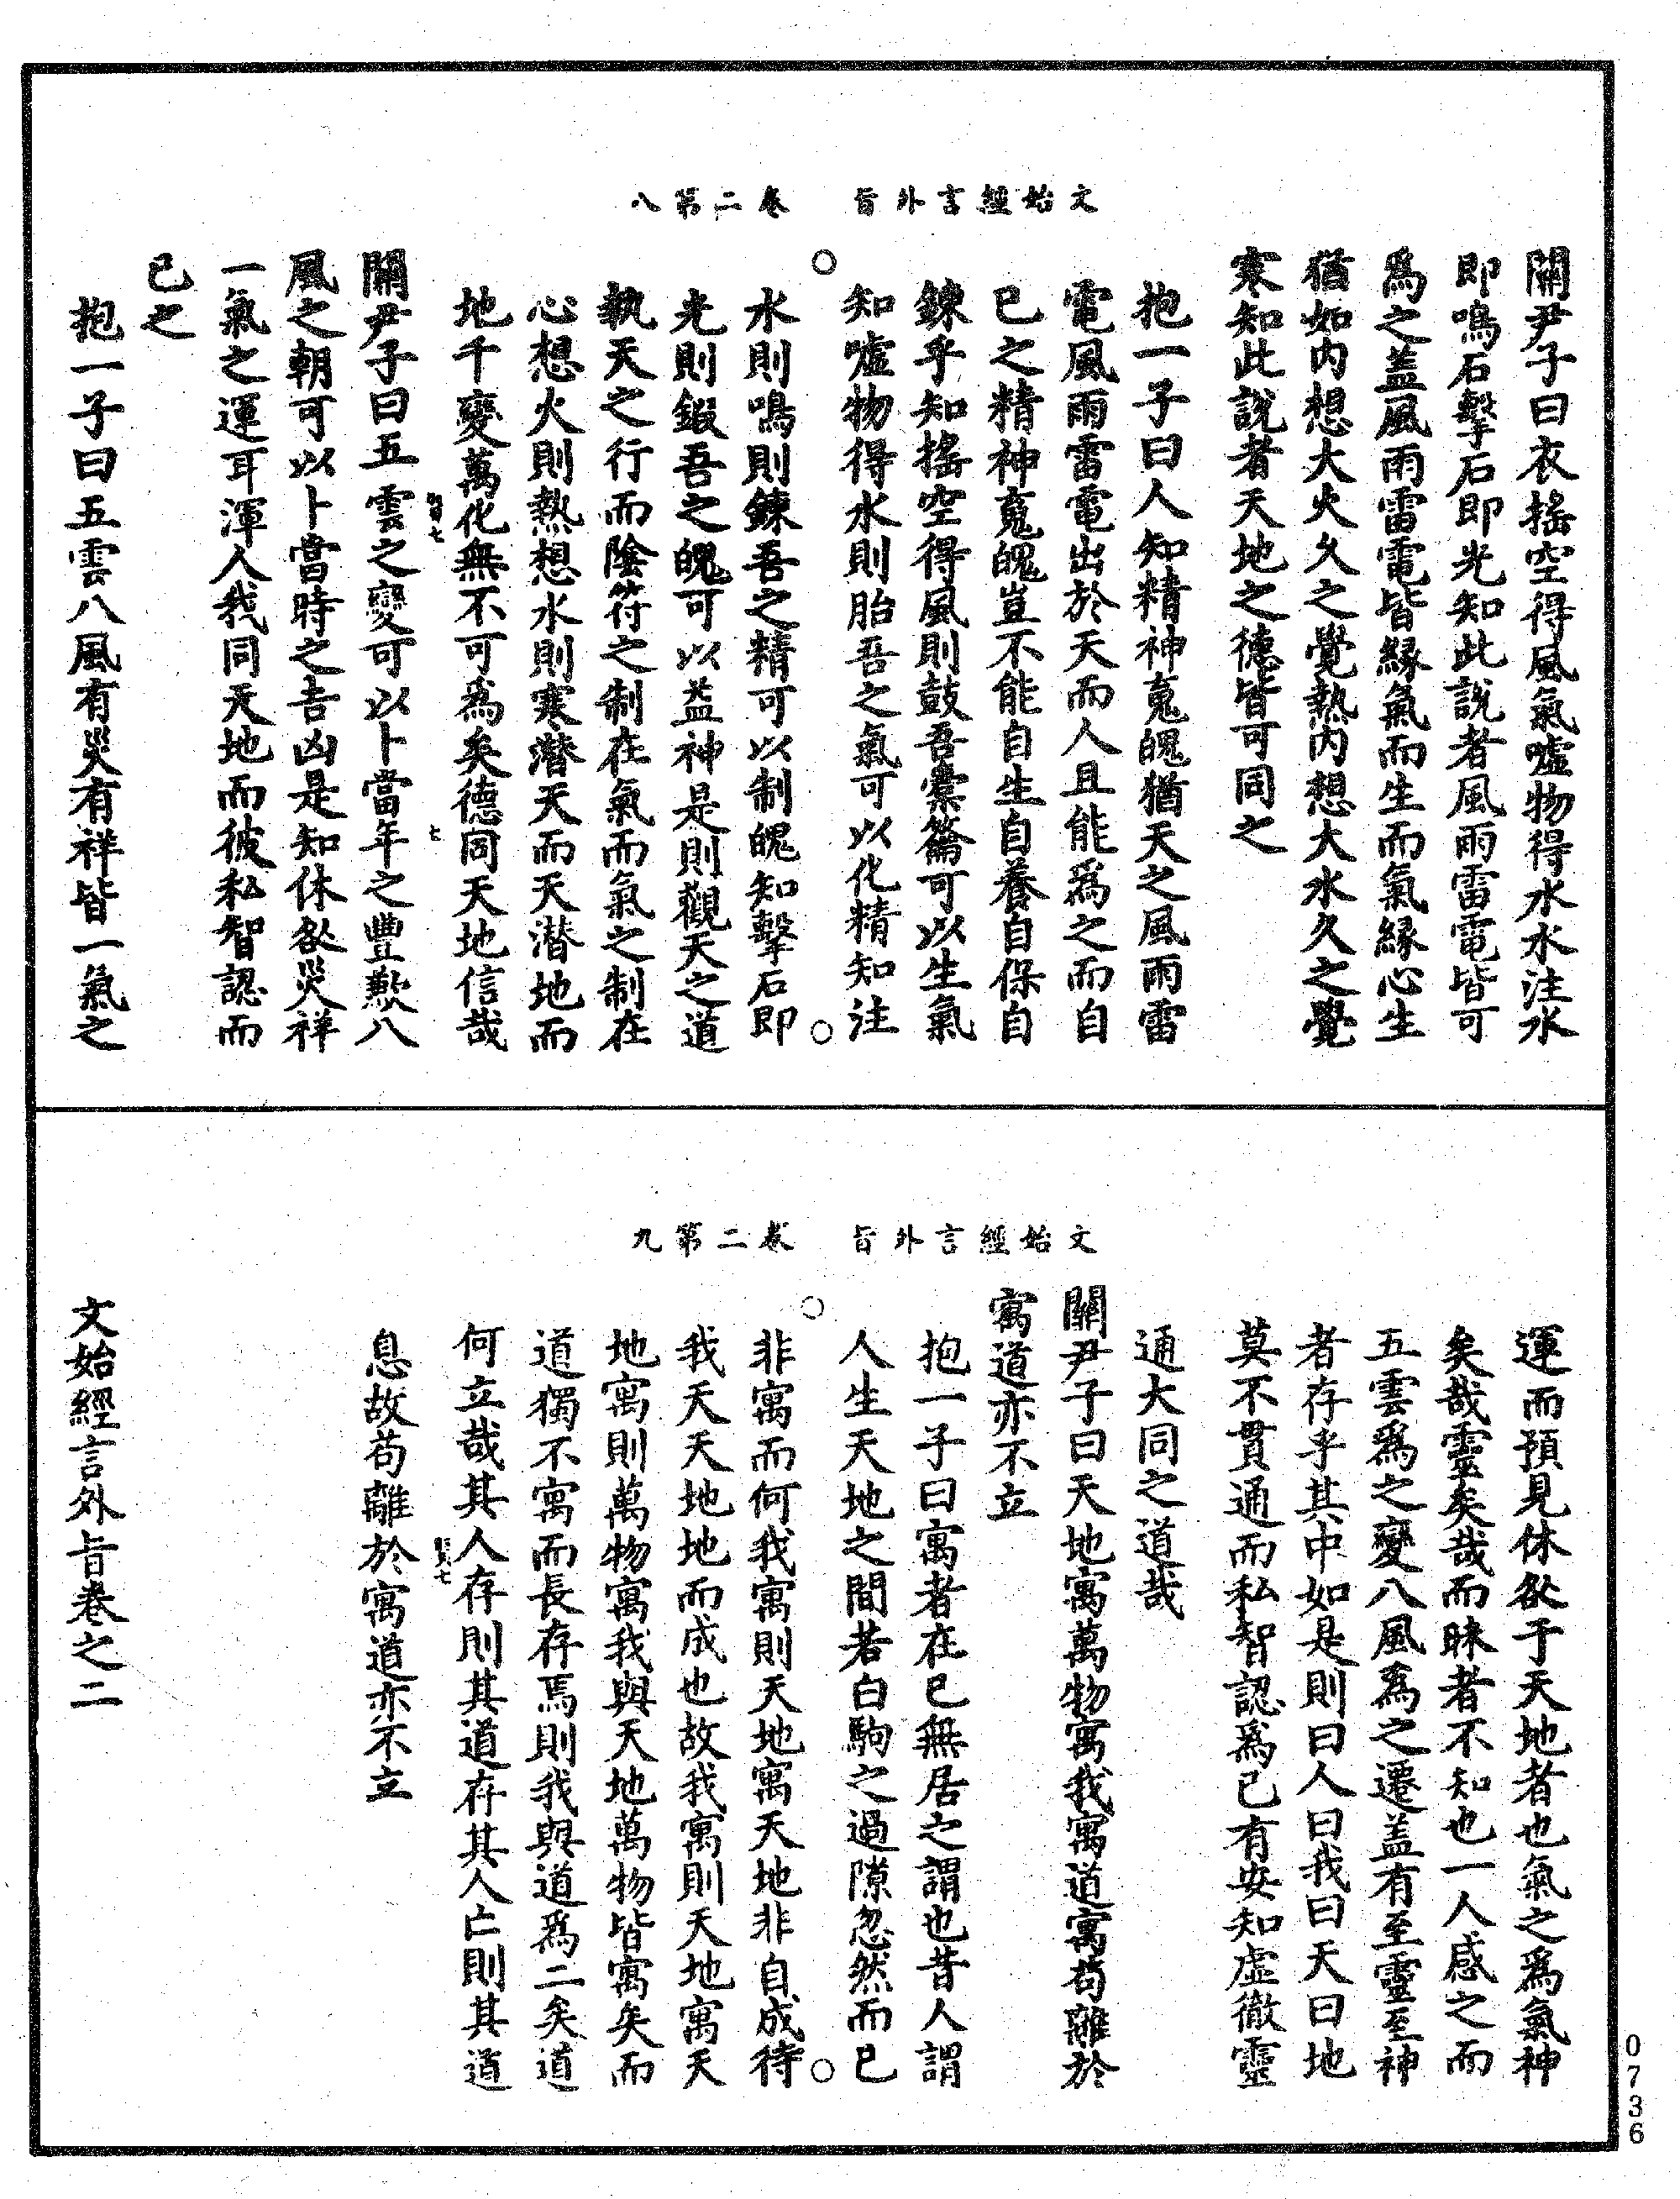 文始經言外旨　卷二第八
關尹子曰衣搖空得風氣噓物得水水注水
即鳴石擊石即光知此說者風雨雷電皆可
爲之蓋風雨雷電皆緣氣而生而氣緣心生
猶如内想大火久之覺熱内想大水久之覺
寒知此說者天地之德皆可同之
抱一子曰人知精神䰟魄猶天之風雨雷
電風雨雷電出於天而人且能爲之而自
已之精神䰟魄豈不能自生自養自保自
鍊乎知搖空得風則鼓吾橐籥可以生氣
知噓物得水則胎吾之氣可以化精知注
水則鳴則鍊吾之精可以制魄知擊石即
光則鍛吾之魄可以益神是則觀天之道
執天之行而陰符之制在氣而氣之制在
心想火則熱想水則寒潛天而天潛地而
地千變萬化無不可爲矣德同天地信哉
關尹子曰五雲之變可以卜當年之豐歉八
風之朝可以卜當時之吉凶是知休咎災祥
一氣之運耳渾人我同天地而彼私智認而
已之
抱一子曰五雲八風有災有祥皆一氣之
文始經言外旨　卷二第九
運而預見休咎于天地者也氣之爲氣神
矣哉靈矣哉而昧者不知也一人感之而
五雲爲之變八風爲之遷蓋有至靈至神
者存乎其中如是則曰人曰我曰天曰地
莫不貫通而私智認爲已有安知虛徹靈
通大同之道哉
關尹子曰天地寓萬物寓我寓道寓苟離於
寓道亦不立
抱一子曰寓者在已無居之謂也昔人謂
人生天地之間若白駒之過隙忽然而已
非寓而何我寓則天地寓天地非自成待
我天天地地而成也故我寓則天地寓天
地寓則萬物寓我與天地萬物皆寓矣而
道獨不寓而長存焉則我與道爲二矣道
何立哉其人存則其道存其人亡則其道
息故苟離於寓道亦不立
文始經言外旨卷之二
0736